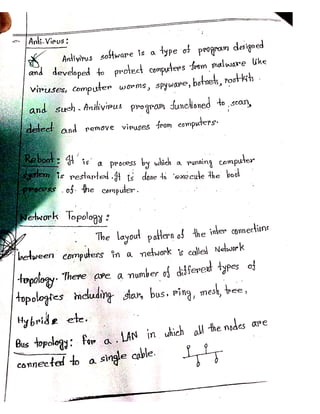 Anti-Virus:
Antivirus software is a type of program designed
and developed to protect computers from malware like
viruses, computer worms, spyware, botnets, rootkits
and such. Antivirus program functioned to scan,
detect and remove viruses from computers.
Reboot: It is a process by which a running computer
system is restarted. It is done to execute the boot
process of the computer.
Network Topology:
The layout pattern of the inter connections
between computers in a network is called Network
topology. There are a number of different types of
topologies including star, bus, ring, mesh, tree,
Hybride etc.
Bus topology: For a LAN in which all the nodes are
connected to a single cable.